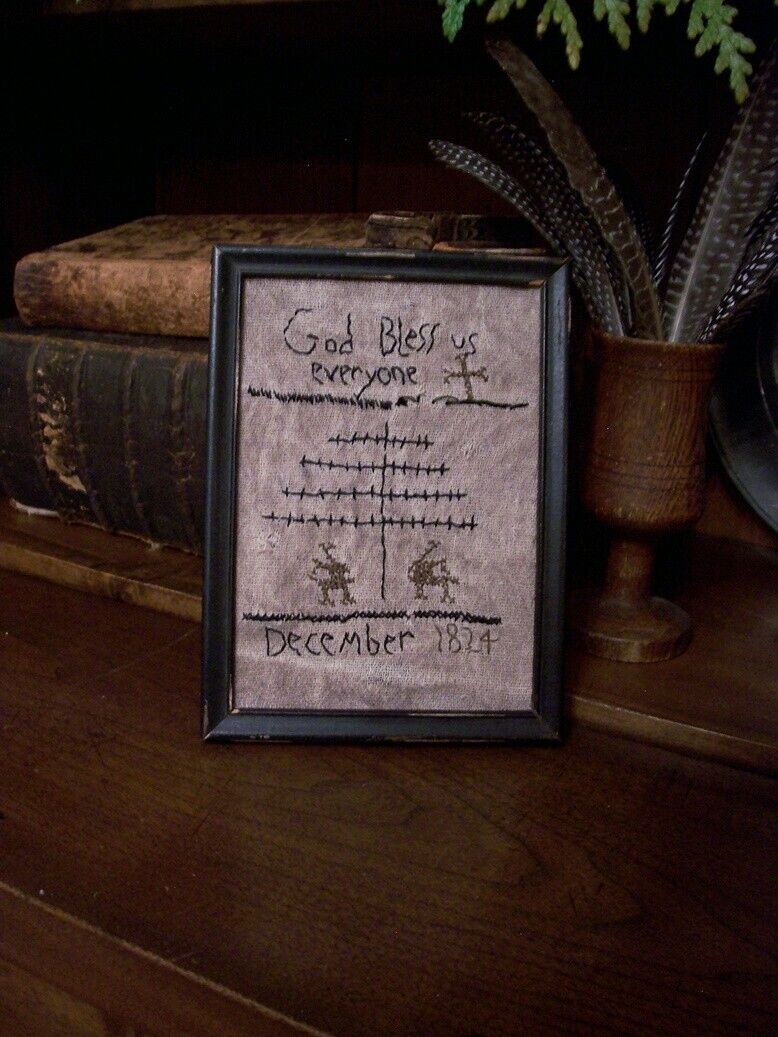 God Bless us
everyone
December 1824